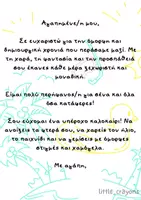 Αγαπημένε/η μου,
Σε ευχαριστώ για την όμορφη και
δημιουργική χρονιά που περάσαμε μαζί. Με
τη χαρά, τη φαντασία και την προσπάθειά
σου έκανες κάθε μέρα ξεχωριστή και
μοναδική.
Είμαι πολύ περήφανος/η για σένα και όλα
όσα κατάφερες!
Σου εύχομαι ένα υπέροχο καλοκαίρι! Να
ανοίξεις τα φτερά σου, να χαρείς τον ήλιο,
το παιχνίδι και να γεμίσεις με όμορφες
στιγμές και χαμόγελα.
Με αγάπη,
little_crayons